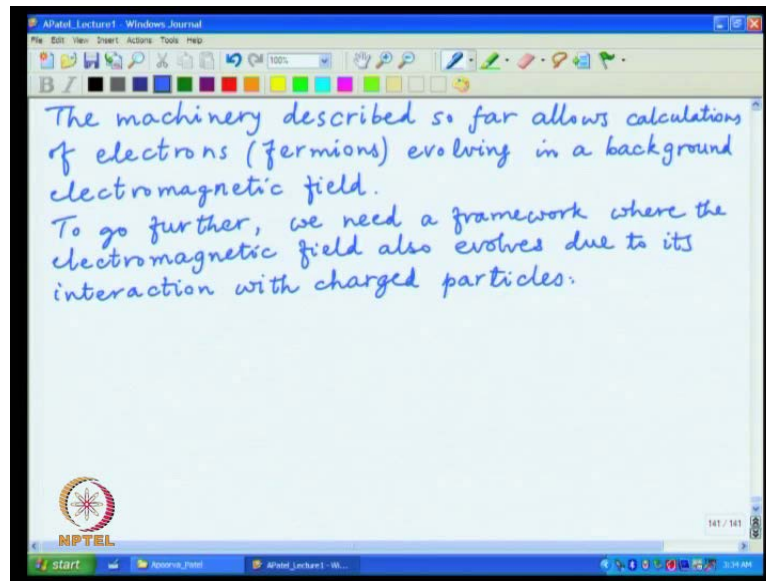 APatel_Lecture1 - Windows Journal
File Edit View Insert Actions Tools Help
100%
B I
The machinery described so far allows calculations
of electrons (fermions) evolving in a background
electromagnetic field.
To go further, we need a framework where the
electromagnetic field also evolves due to its
interaction with charged particles.
NPTEL
141 / 141
start Apoorva_Patel APatel_Lecture1 - Wi... 3:34 AM